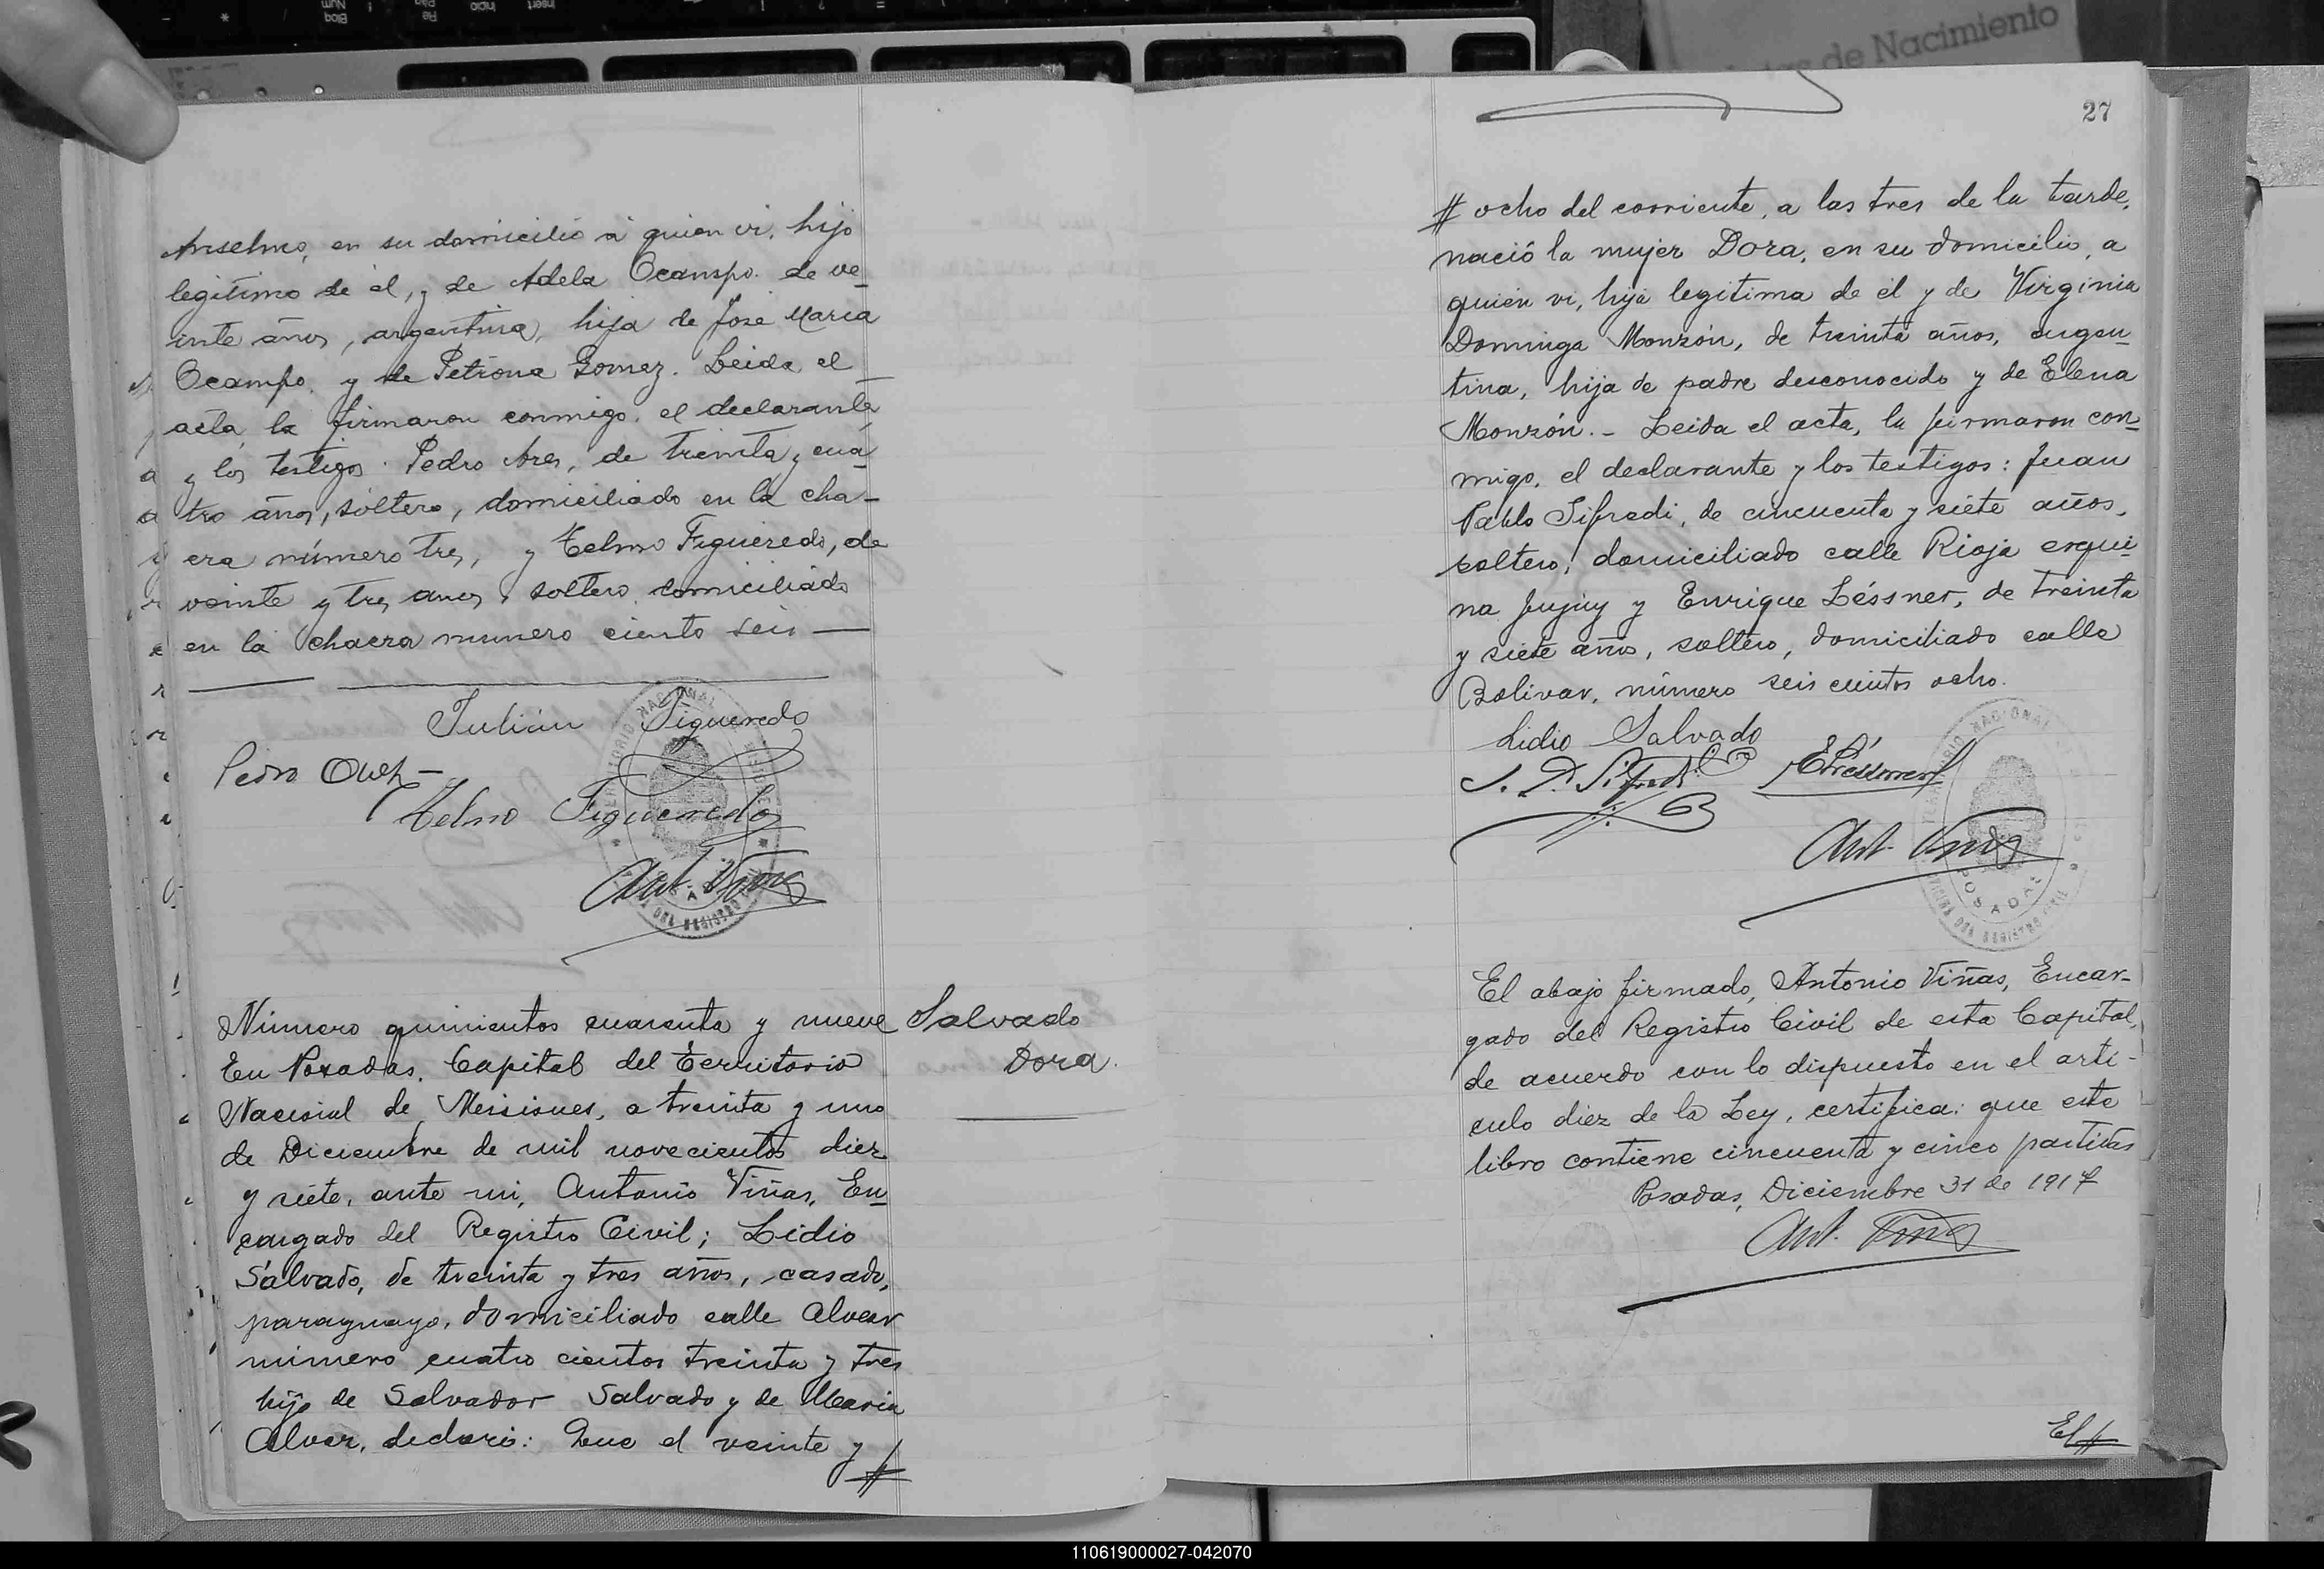 de Nacimiento
Anselmo, en su domicilio a quien vi, hijo
legitimo de él, y de Adela Ocampo de ve_
inte años, argentina, hija de José Maria
Ocampo y de Petrona Gomez. Leida el
acta la firmaron conmigo, el declarante
y los testigos Pedro Ares, de treinta y cua_
tro años, soltero, domiciliado en la cha_
cra número tres, y Telmo Figueredo, de
veinte y tres anos, soltero domiciliado
en la chacra numero ciento seis
Julián Figueredo
Pedro
Telmo Figueredo
Ant. Viñas
Número quinientos cuarenta y nueve
En Posadas, Capital del Territorio
Nacional de Misiones, a treinta y uno
de Diciembre de mil novecientos diez
y siete, ante mi, Antonio Viñas, En_
cargado del Registro Civil; Lidio
Salvado, de treinta y tres años, casado,
paraguayo, domiciliado calle Alvear
número cuatro cientos treinta y tres
hijo de Salvador Salvado y de Maria
declaró: Que el veinte y #
Salvado
Dora.
27
# ocho del corriente, a las tres de la tarde,
nació la mujer Dora, en su domicilio, a
quién vi, hija legitima de él y de Virginia
Dominga Monzón, de treinta años, argen_
tina, hija de padre desconocido y de Elena
Monzón.- Leida el acta, la firmaron con_
migo, el declarante y los testigos: Juan
Pablo Sifredi, de cincuenta y siéte años,
soltero, domiciliado calle Rioja esqui_
na Jujuy y Enrique Léssner, de treinta
y siete años, soltero, domiciliado calle
Bolivar, número seis cientos ocho.
Lidio Salvado
J. P. Sifredi
E. Léssner
Ant. Viñas
El abajo firmado, Antonio Viñas, Encar_
gado del Registro Civil de esta Capital,
de acuerdo con lo dispuesto en el arti-
culo diez de la Ley, certifica: que este
libro contiene cincuenta y cinco partidas
Posadas, Diciembre 31 de 1917
Ant. Viñas
El #
110619000027-042070